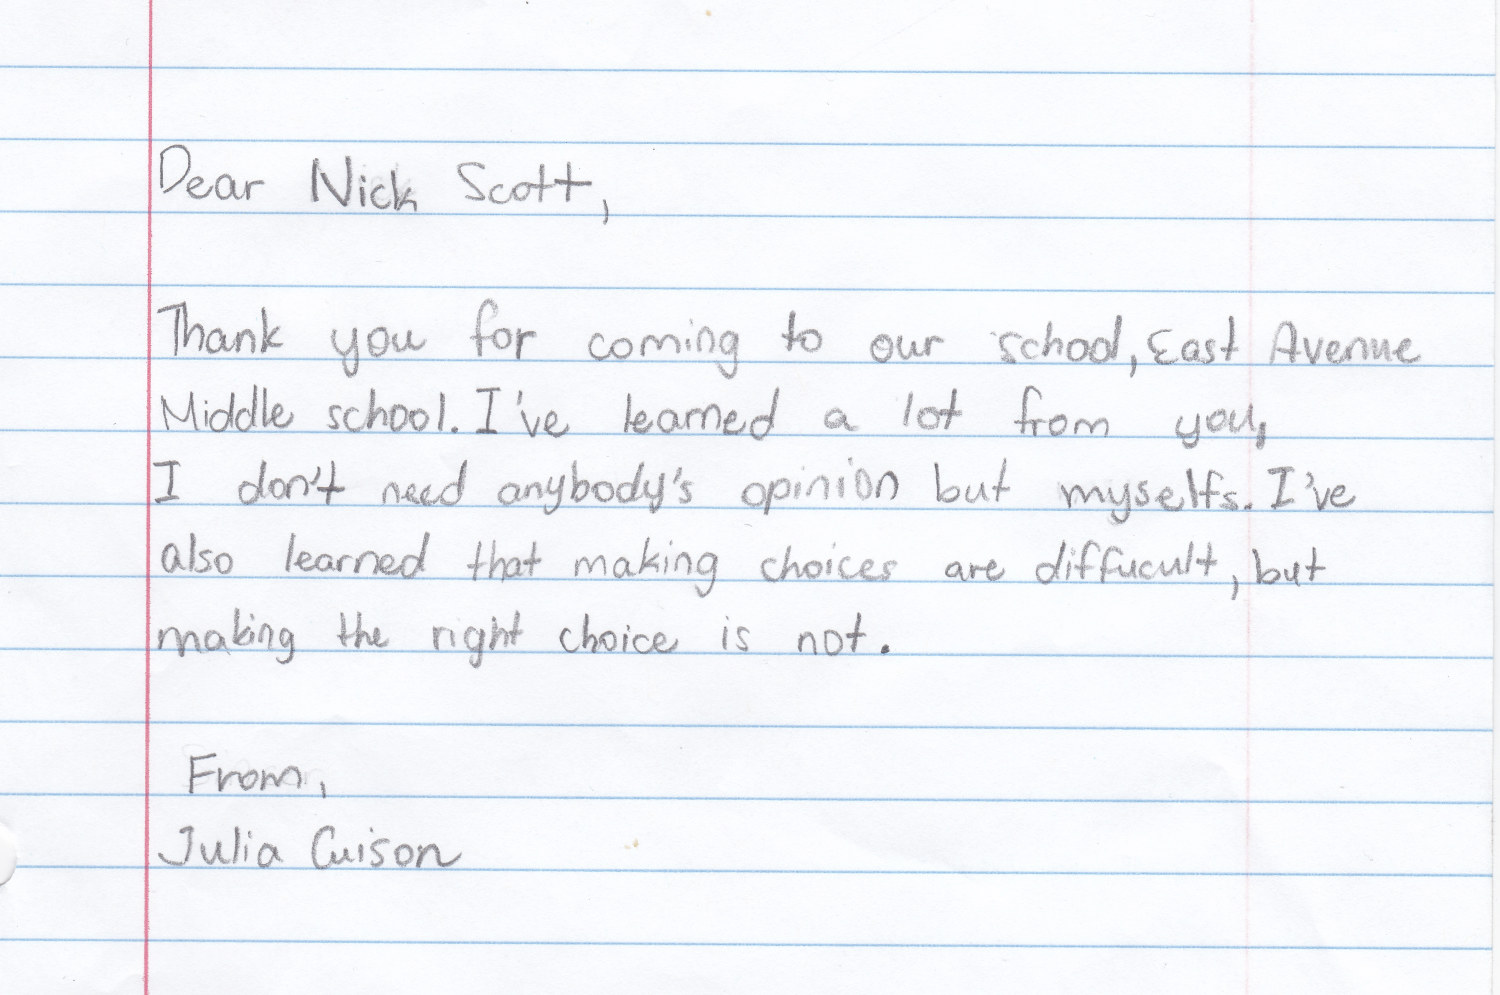 Dear Nick Scott,
Thank you for coming to our school, East Avenue
Middle school. I've learned a lot from you,
I don't need anybody's opinion but myselfs. I've
also learned that making choices are diffucult, but
making the right choice is not.
From,
Julia Cuison